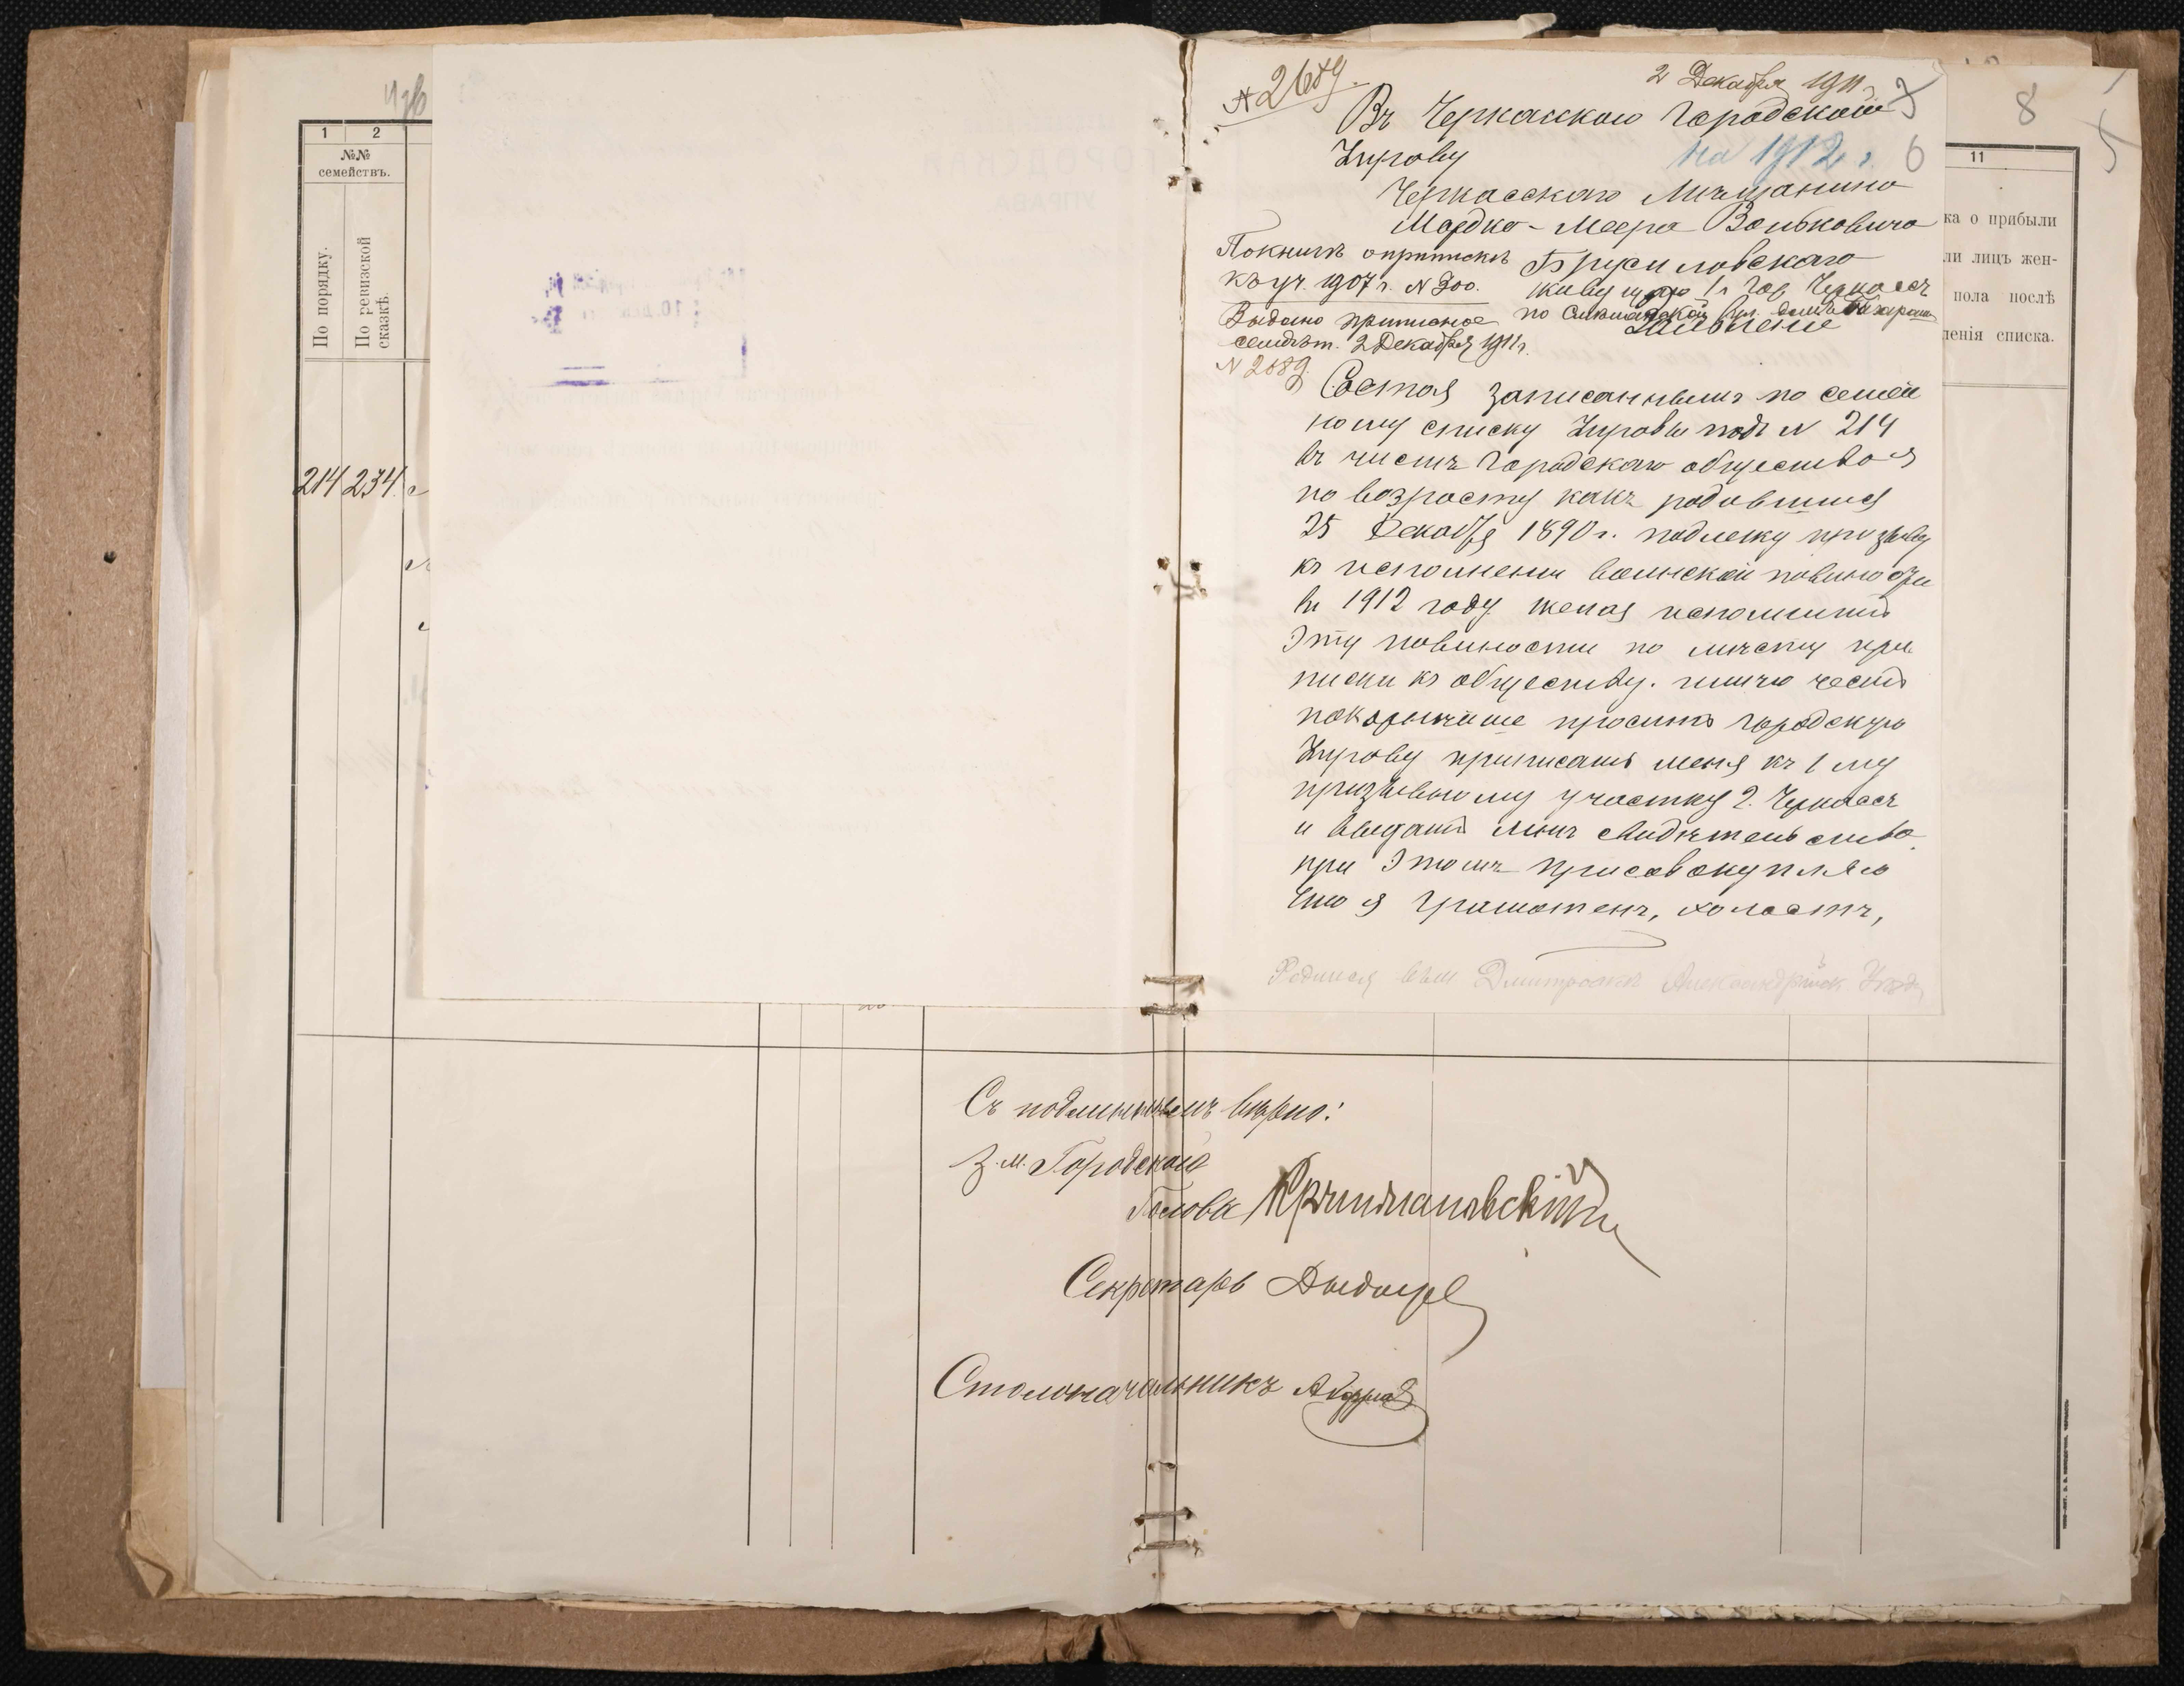 1 2
№№
семействъ.
По порядку.
По ревизской
сказкѣ.
214 234
№ 2689.
2 Декабря 1911 г.
Въ Черкасскою Городскою
Управу
на 1912 г. 6
Черкасского Мѣщанина
Мордко-Меера Вольковича
Брусиловскаго
живущаго въ гор. Черкассъ
по
Заявленіе
По книгѣ о припискѣ
къ уч. 1907 г. № 200.
Выдано приписное
свидѣт. 2 Декабря 1911 г.
№ 2689
Состоя записаннымъ по семей
ному списку Управы подъ № 214
въ числѣ городскаго общества я
по возрасту какъ родовшийся
25 Декабря 1890 г. подлежу призыву
къ исполнени воинской повинности
въ 1912 году желая исполнить
Эту повинности по мѣсту при
писки къ обществу. имѣю честь
покорнѣйше просить городскую
Управу приписать меня къ 1 му
призывному участку г. Черкассъ
и выдать мнѣ свидѣтельство.
при Этомъ присовокупляю
что я грамотенъ, холостъ,
Родился въ Дмитровкѣ Александрійск Уѣзд
8
5
11
ка о прибыли
ли лицъ жен-
пола послѣ
ленія списка.
Съ подлиннымъ вѣрно:
З. м. Городской
Голова
Секретарь
Столоначальникъ